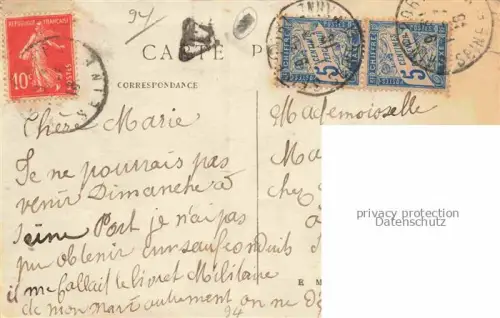 94
RÉPUBLIQUE FRANÇAISE
10c POSTES
T
CARTE P
CORRESPONDANCE
CHIFFRE 5 CHIFFRE 5
SEINE
Chère Marie
Je ne pourrais pas
venir Dimanche à
Seine Port je n'ai pas
pu obtenir un sauf conduits
il me fallait le livret Militaire
de mon mari autrement on ne
94
Mademoiselle
Ma
chez
privacy protection
Datenschutz